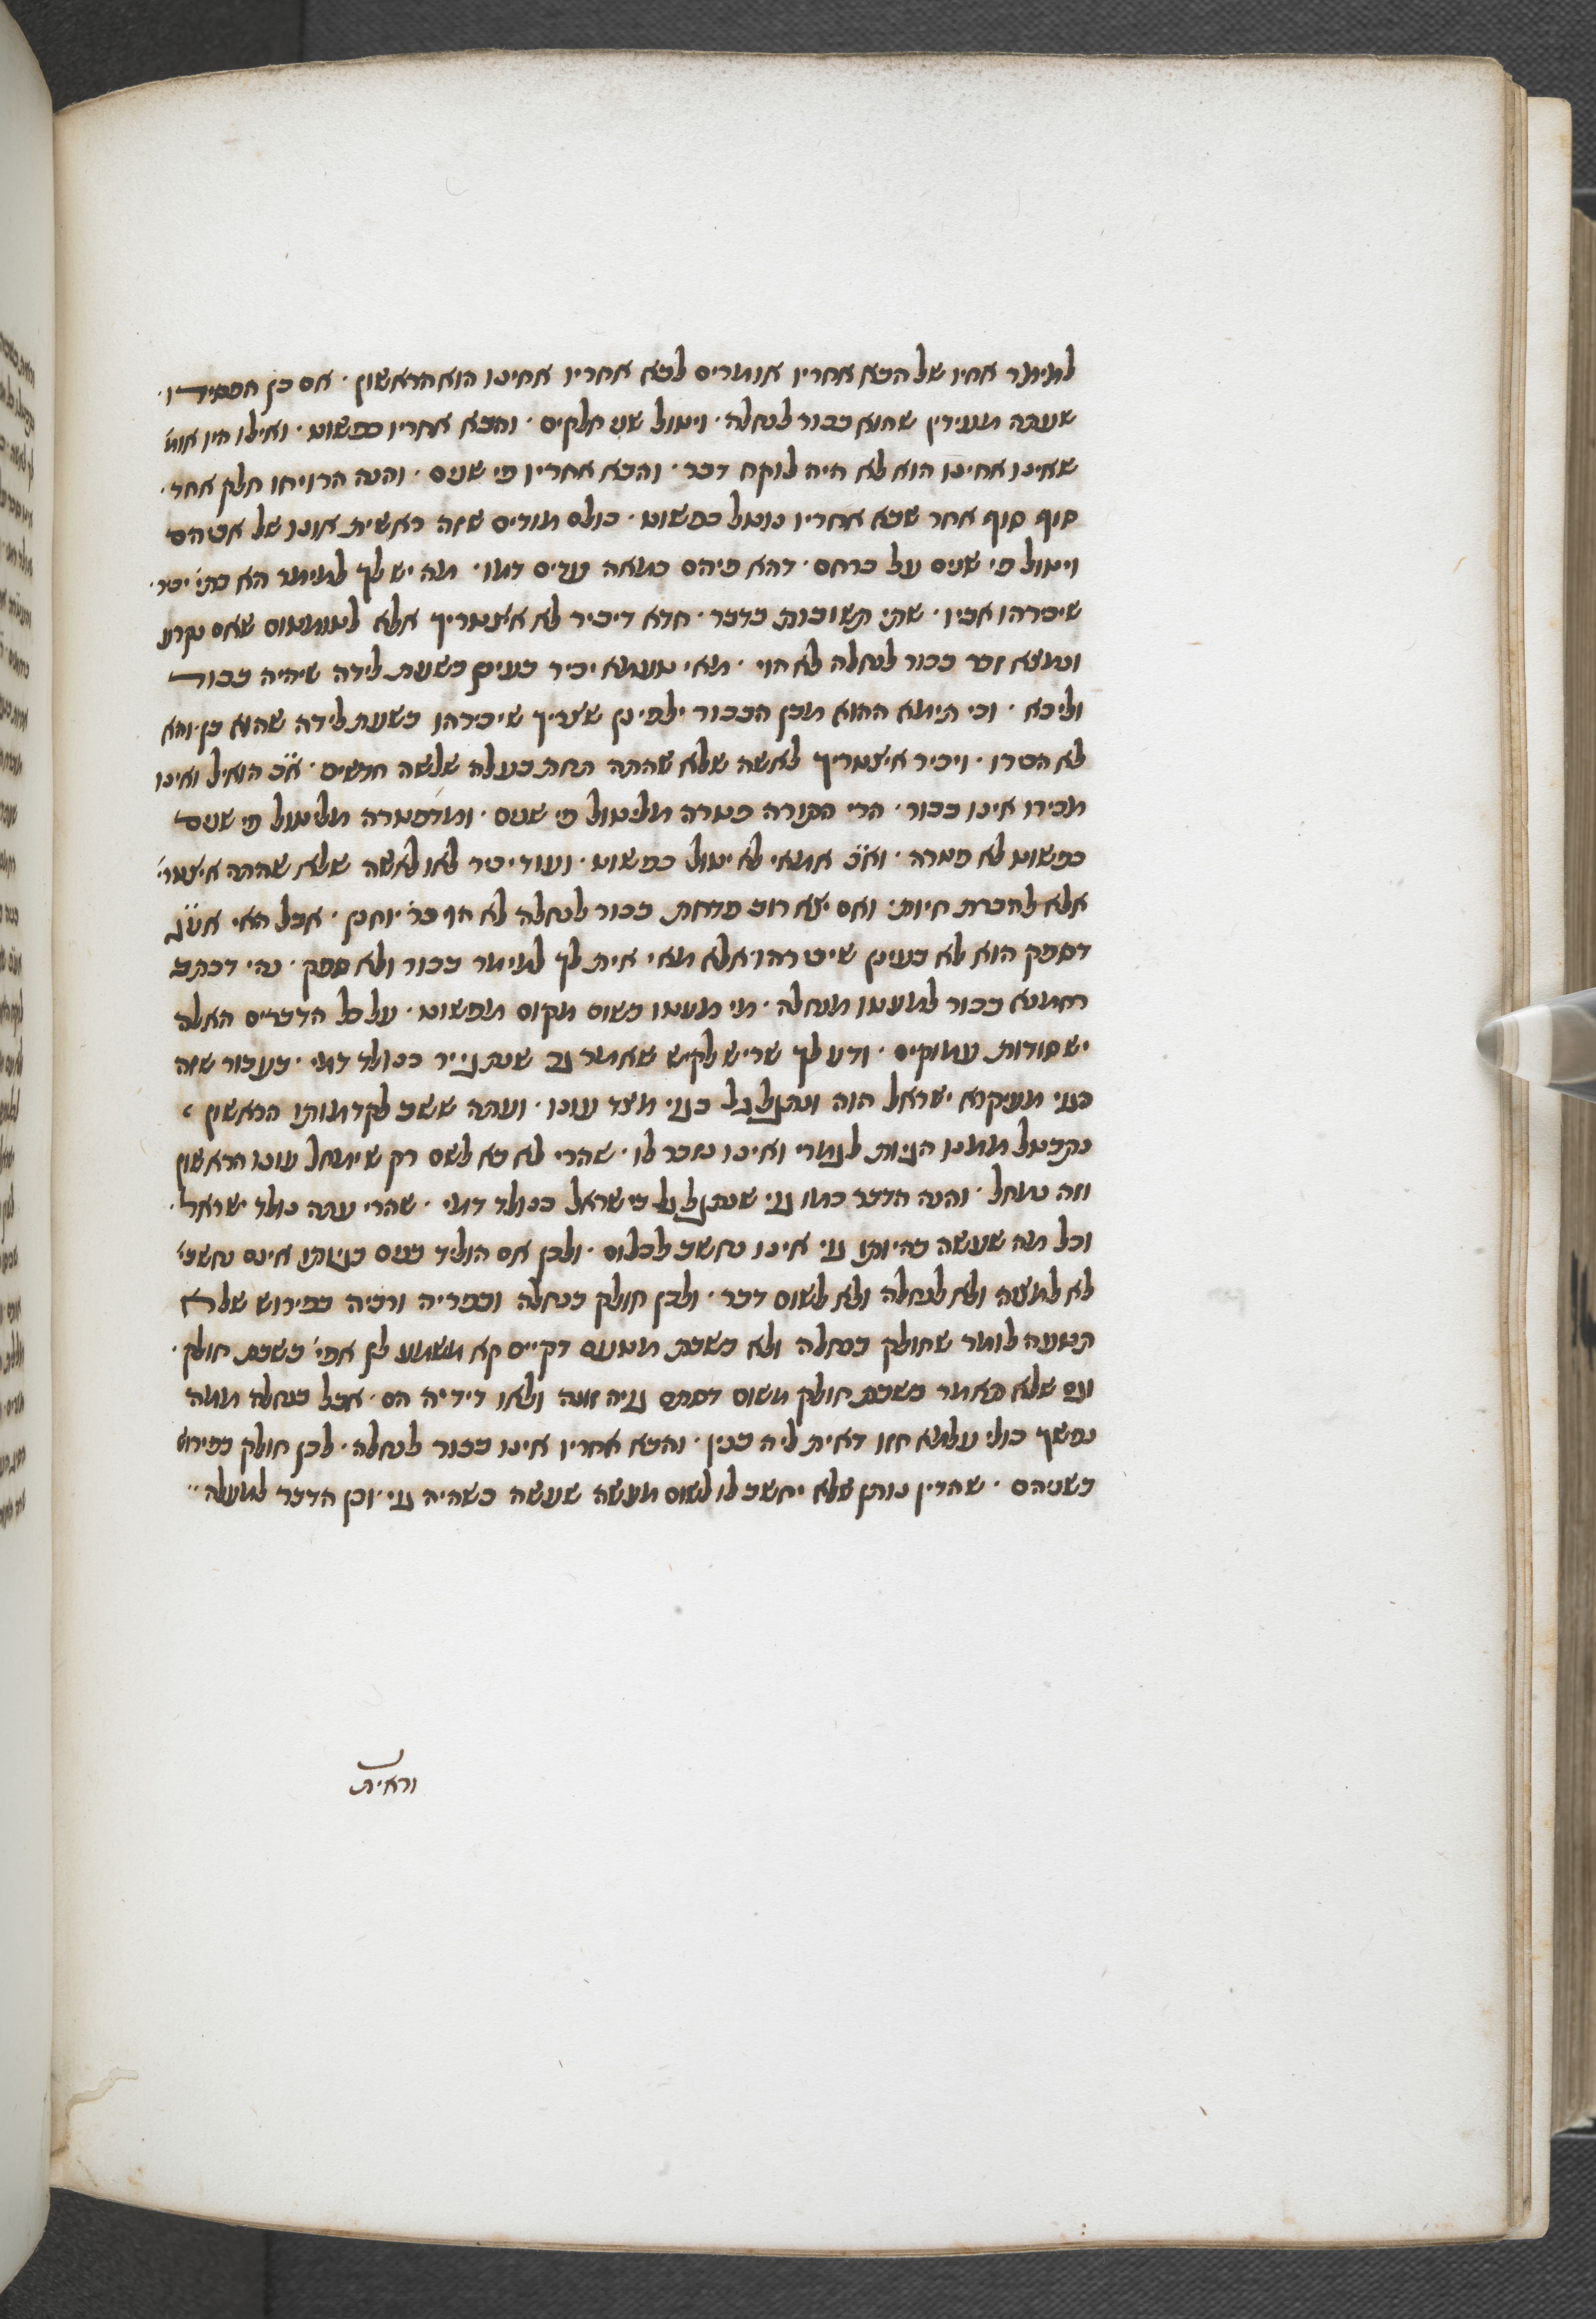 למימר אחיו של הבא אחריו אומרים לבא אחריו אחינו הוא הראשון · אם כן הפסידו ·
שעתה מעידין שהוא בכור לנחלה · ויטול שני חלקים · והבא אחריו כפשוט · ואילו היו אומ'
שאינו אחינו הוא לא היה לוקח דבר · והבא אחריו פי שנים · והנה הרויחו חלק אחד ·
סוף סוף אחר שבא אחריו נוטל כפשוט · כולם מודים שזה ראשית אונו של אביהם
ויטול פי שנים על כרחם · דהא פיהם כמאה עדים דמו · מה יש לך למימר הא כתי' יכיר ·
שיכירהו אביו · שתי תשובות בדבר · חדא דיכיר לא איצטריך אלא לטומטום שאם נקרע
ונמצא זכר בכור לנחלה לא הוי · מאי טעמא יכיר בעינן בשעת לידה שיהיה בכור
וליכא · וכי תימא ההוא מבן הבכור ילפינן שצריך שיכירהו בשעת לידה שהוא בן · והא
לא הכירו · ויכיר איצטריך לאשה שלא שהתה תחת בעלה שלשה חדשים · א"כ הואיל ואינו
מכירו אינו בכור · הרי התורה פטרה מליטול פי שנים · ומדפטרה מליטול פי שנים
כפשוט לא פטרה · וא"כ אמאי לא יטול כפשוט · ועוד יכיר לאו לאשה שלא שהתה איצטרי'
אלא להכרת חיות · ואם יצא רוב פדחת בכור לנחלה לא הוי כר' יוחנן · אבל האי אע"ג
דספק הוא לא בעינן שיכירהו אלא מאי אית לך למימר בכור ולא ספק · נהי דכתב
רחמנא בכור למעטו מנחלה · מי מעטו בשום מקום מפשוט · על כל הדברים האלה
יש סודות עמוקים · ודע לך שריש לקיש שאומר גר שנתגייר כנולד דמי · בעבור שזה
הגוי מעיקרא ישראל הוה ונתגלגל בגוי מצד עונו · ועתה ששב לקדמותו הראשון
נתבטל ממנו הגיות לגמרי ואינו נזכר לו · שהרי לא בא לשם רק שימחל עונו הראשון
וזה נמחל · והנה הדבר כמו גוי שנתגלגל בישראל כנולד דמי · שהרי עתה נולד ישראל ·
וכל מה שעשה בהיותו גוי אינו נחשב לכלום · ולכן אם הוליד בנים בגיותו אינם נחשבי'
לא למצוה ולא לנחלה ולא לשום דבר · ולכן חולק בנחלה ובפריה ורביה בפירוש שלא
תטעה לומר שחולק בנחלה ולא בשבת מטעם דקיים קא משמע לן אפי' בשבת חולק ·
וגם שלא תאמר בשבת חולק משום דסתם גויה זונה ולאו דידיה הם · אבל בנחלה ממה
נפשך כולי עלמא חזו דאית ליה בנין · והבא אחריו אינו בכור לנחלה · לכן חולק בפירוש
בשניהם · שהדין נותן שלא יחשב לו לשום מעשה שעשה כשהיה גוי · וכן הדבר למעלה ··
וראית